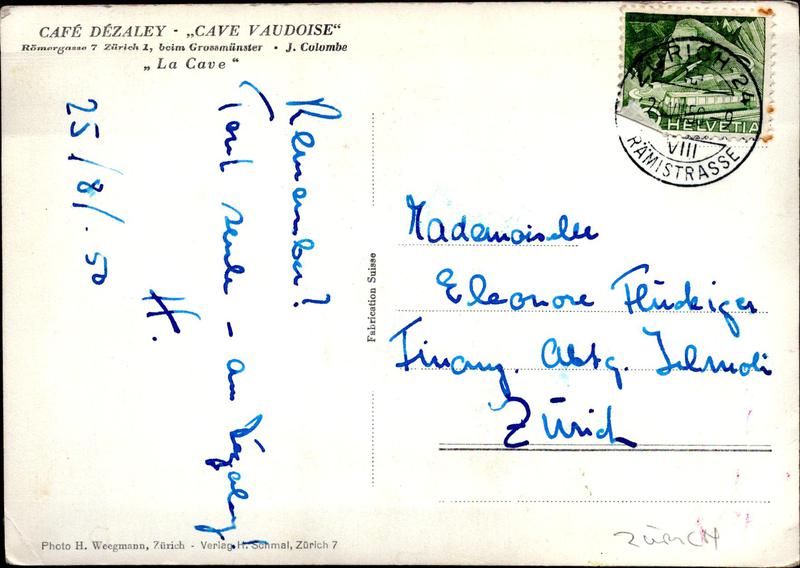 CAFÉ DÉZALEY - „CAVE VAUDOISE“
Römergasse 7 Zürich 1, beim Grossmünster • J. Colombe
„La Cave“
Remember?
Tout seule - au Dézaley!
H.
25/8/.50
Fabrication Suisse
ZÜRICH 24
VIII
RÄMISTRASSE
HELVETIA
Mademoiselle
Eleonore Flückiger
Finanz. Abtg.
Zürich
Photo H. Weegmann, Zürich - Verlag H. Schmal, Zürich 7
ZÜRICH